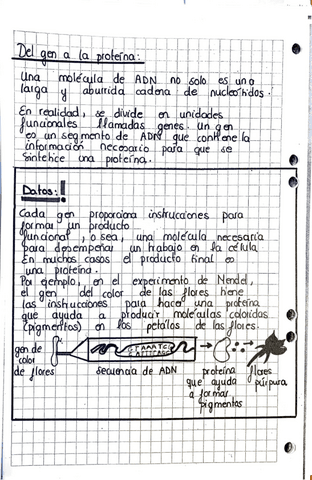 Del gen a la proteína:
Una molécula de ADN no solo es una
larga y aburrida cadena de nucleótidos.
En realidad, se divide en unidades
funcionales llamadas genes. Un gen
es un segmento de ADN que contiene la
información necesario para que se
sintetice una proteína.
Datos:!
Cada gen proporciona instrucciones para
formar un producto
funcional, o sea, una molécula necesaria
para desempeñar un trabajo en la célula.
En muchos casos el producto final es
una proteína.
Por ejemplo, en el experimento de Mendel,
el gen del color de las flores tiene
las instrucciones para hacer una proteína
que ayuda a producir moléculas coloridas
(pigmentos) en los petalos de las flores.
gen de color de flores
secuencia de ADN
proteína que ayuda a formar pigmentos
flores púrpura